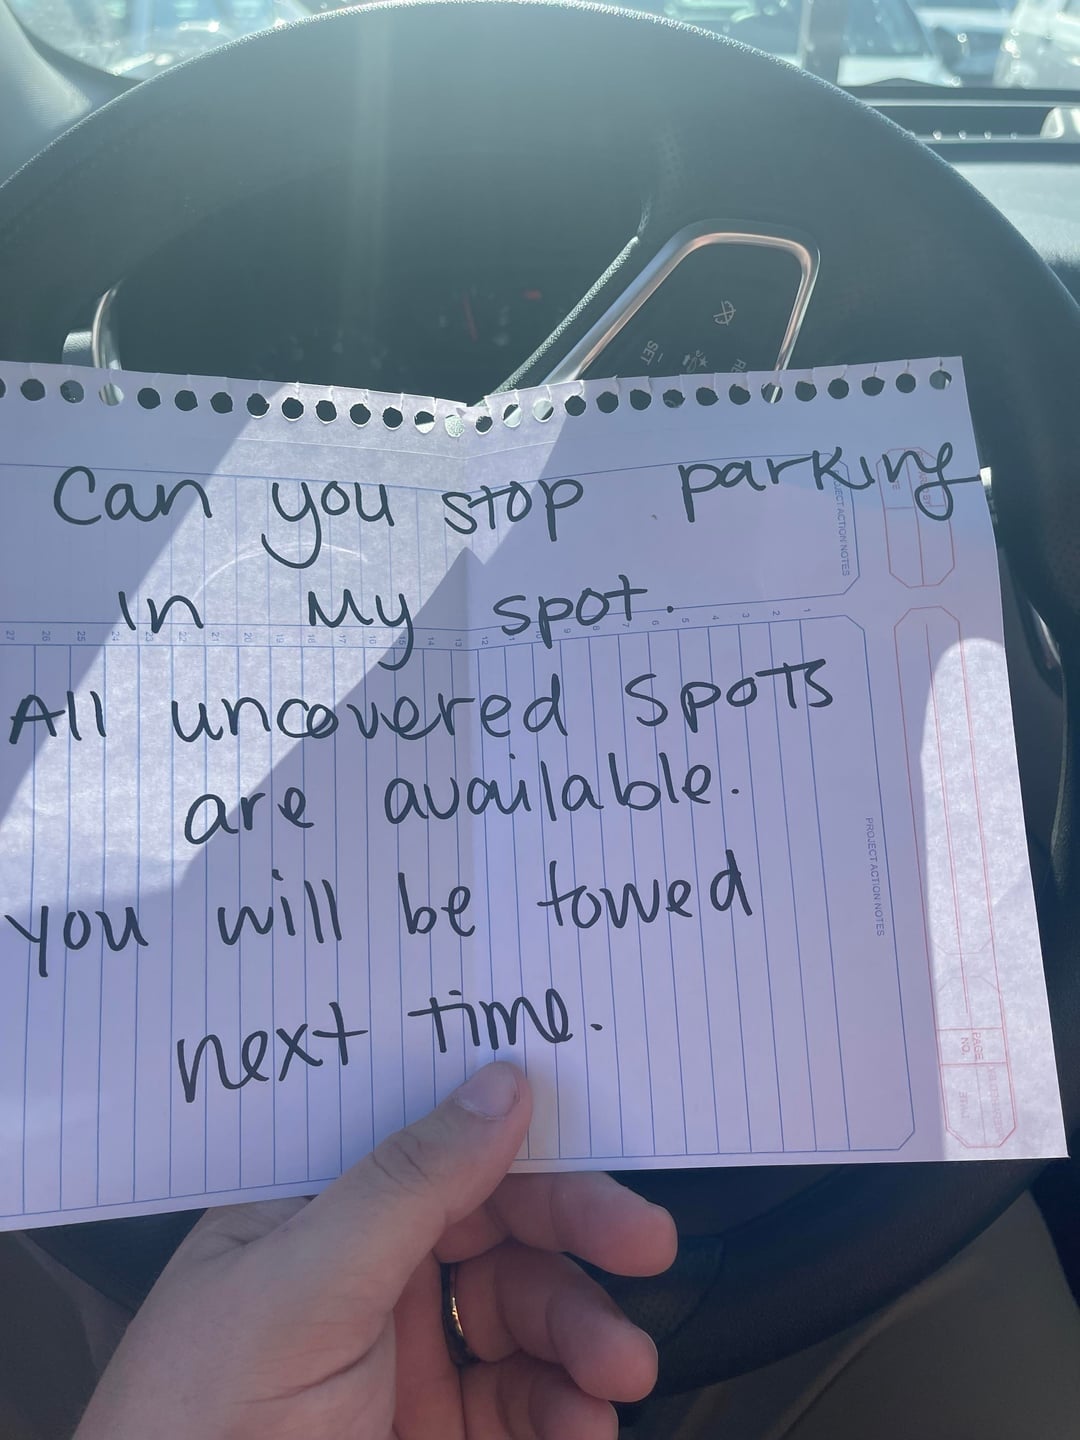 Can you stop parking
in my spot.
All uncovered spots
are available.
you will be towed
next time.
PROJECT ACTION NOTES
PROJECT ACTION NOTES
1 2 3 4 5 6 7 8 9 10 11 12 13 14 15 16 17 18 19 20 21 22 23 24 25 26 27
PAGE NO.
SET